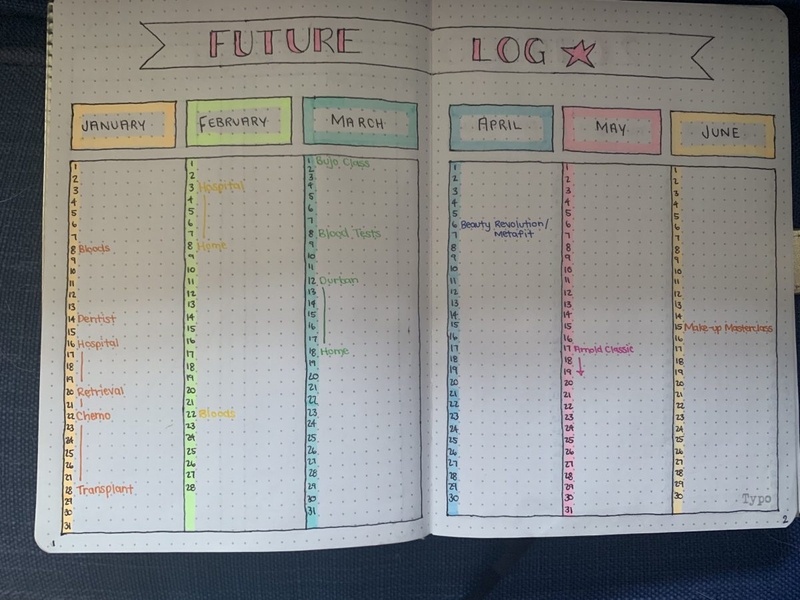 FUTURE LOG
JANUARY
1
2
3
4
5
6
7
8 Bloods
9
10
11
12
13
14 Dentist
15
16 Hospital
17
18
19
20 Retrieval
21
22 Chemo
23
24
25
26
27
28 Transplant
29
30
31
FEBRUARY
1
2
3 Hospital
4
5
6
7
8 Home
9
10
11
12
13
14
15
16
17
18
19
20
21
22 Bloods
23
24
25
26
27
28
MARCH
1 Bujo Class
2
3
4
5
6
7
8 Blood Tests
9
10
11
12 Durban
13
14
15
16
17
18 Home
19
20
21
22
23
24
25
26
27
28
29
30
31
APRIL
1
2
3
4
5
6 Beauty Revolution/
7 Metafit
8
9
10
11
12
13
14
15
16
17
18
19
20
21
22
23
24
25
26
27
28
29
30
MAY
1
2
3
4
5
6
7
8
9
10
11
12
13
14
15
16
17 Arnold Classic
18
19
20
21
22
23
24
25
26
27
28
29
30
31
JUNE
1
2
3
4
5
6
7
8
9
10
11
12
13
14
15 Make-up Masterclass
16
17
18
19
20
21
22
23
24
25
26
27
28
29
30
Typo
1
2